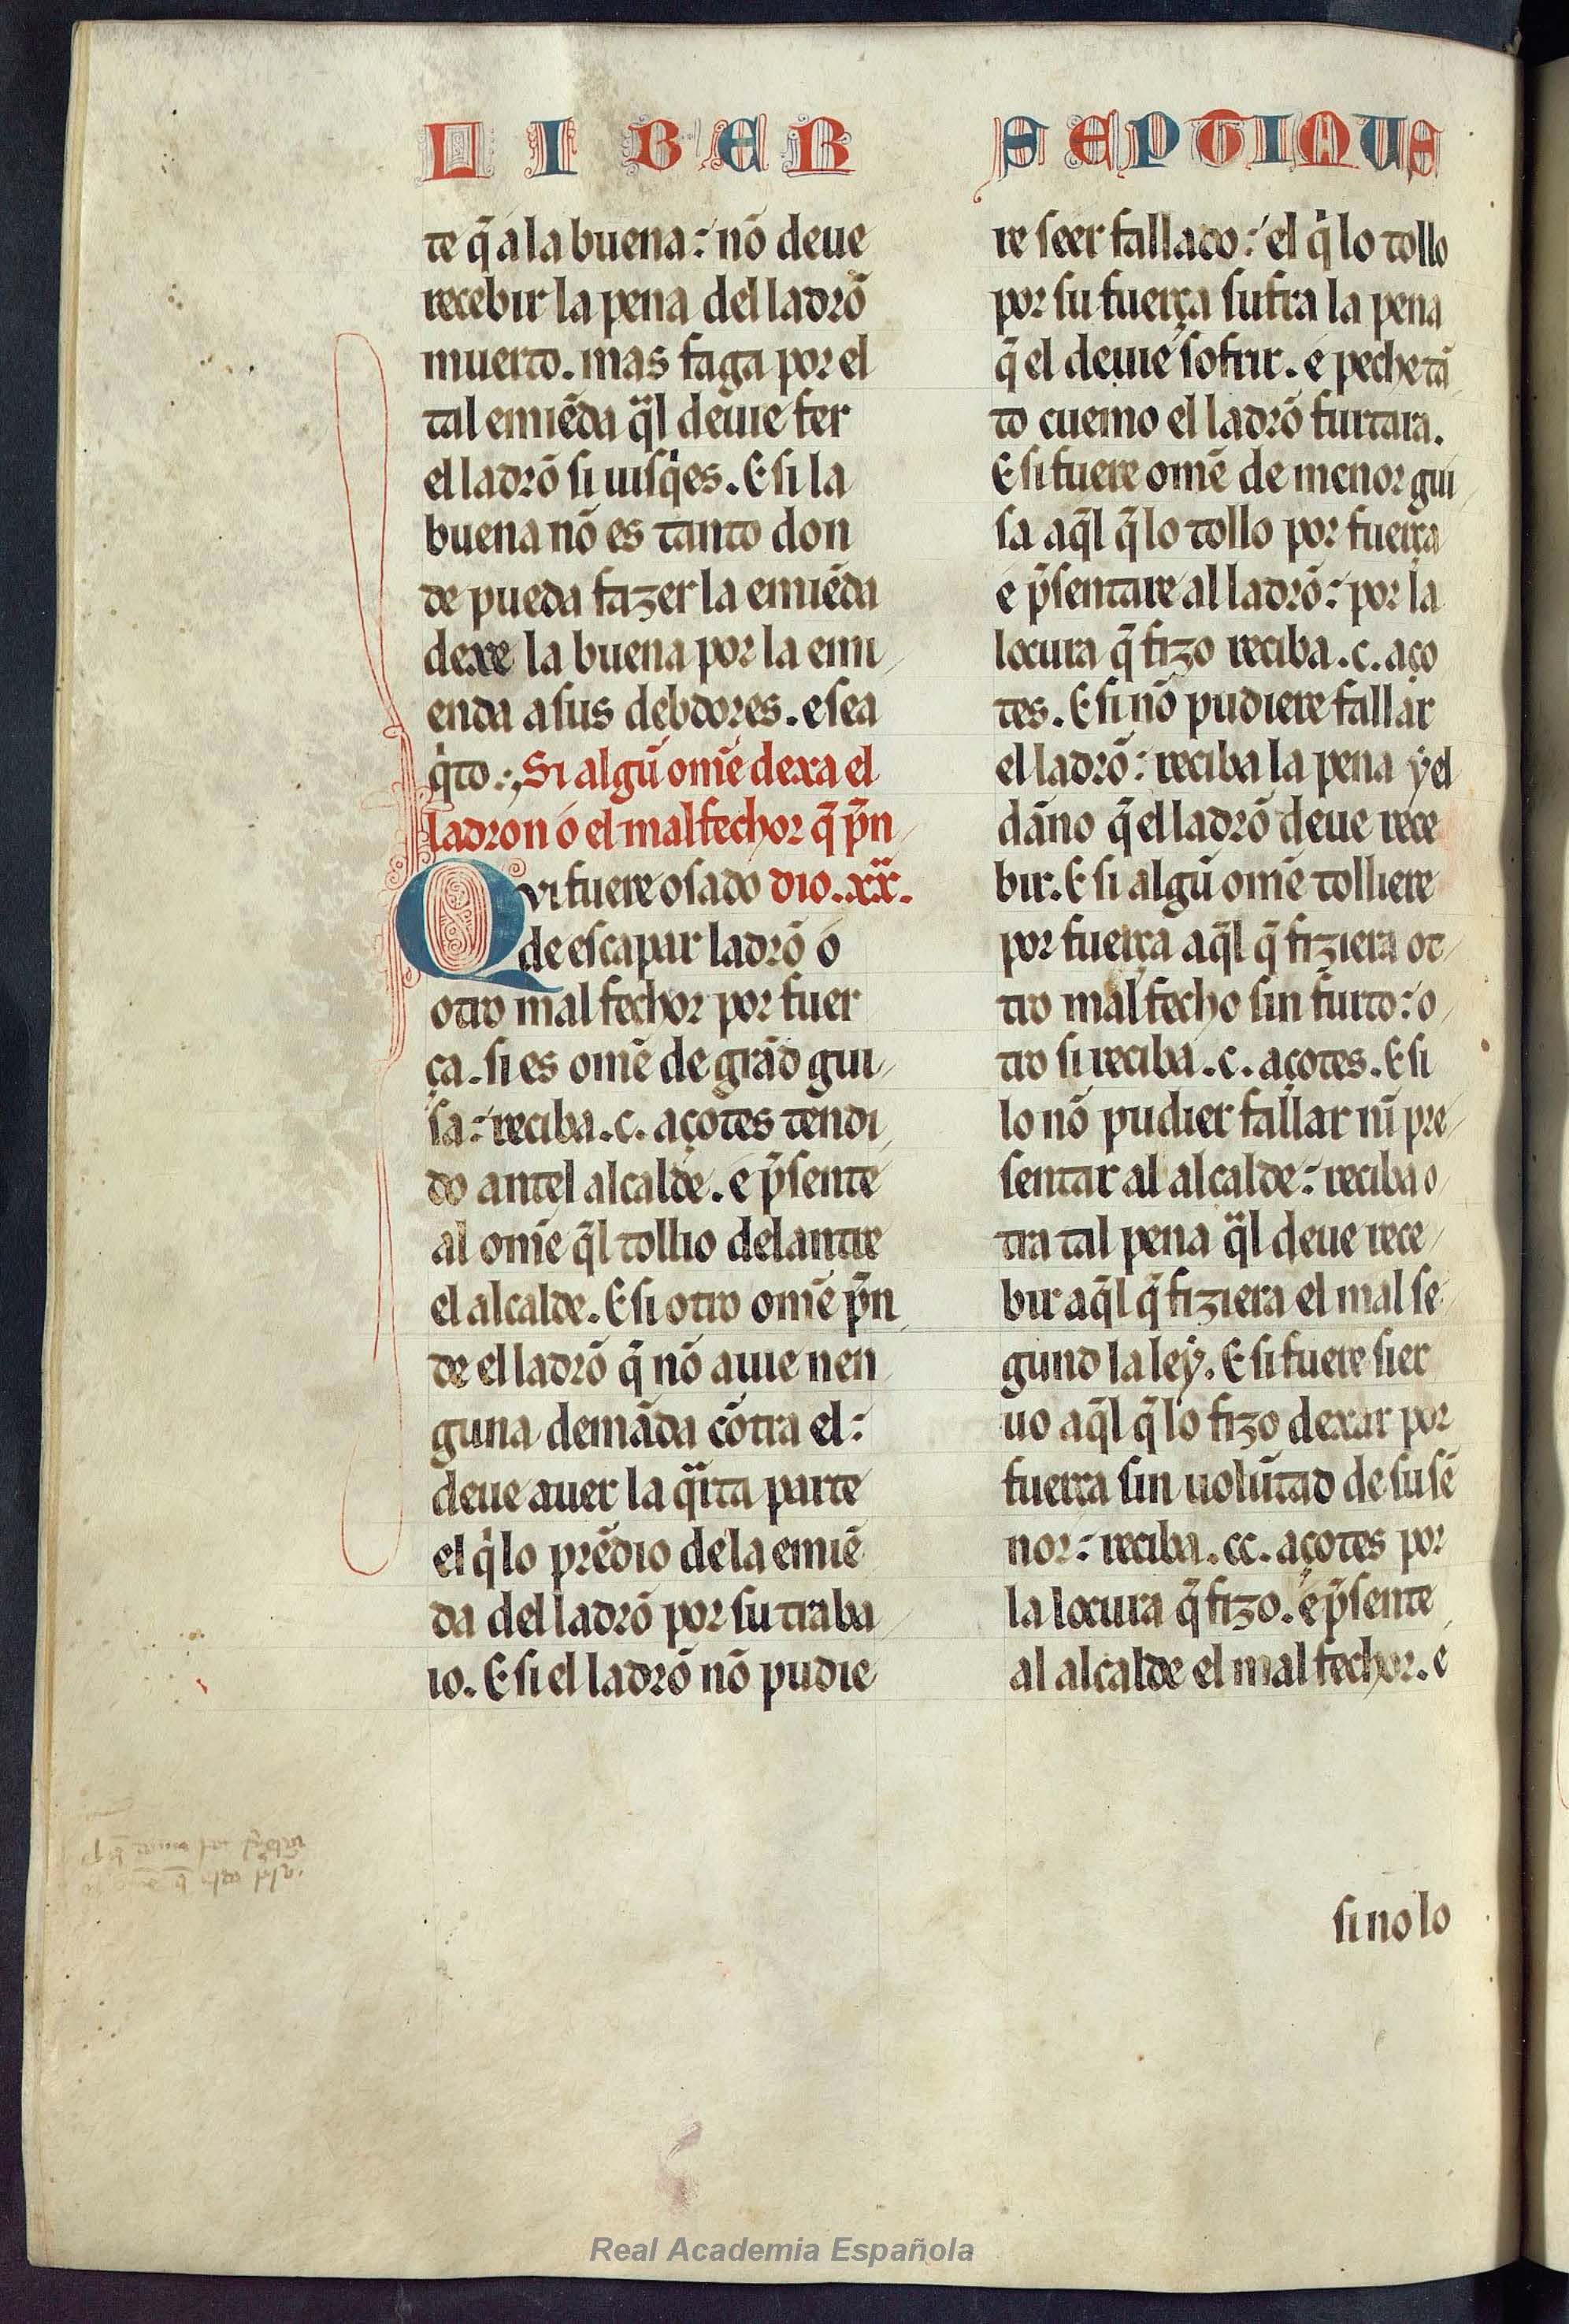 LIBER SEPTIMUS
te q̄ a la buena: nō deue
recebir la pena del ladrō
muerto. mas faga por el
tal emiēda q̈l deuie fer
el ladrō si uisq̇es. E si la
buena nō es tanto don
de pueda fazer la emiēda
dexe la buena por la emi
enda a sus debdores. e sea
q̇to. Si algū omē dexa el
ladron o el malfechor q̄ p̄n
Qvi fuere osado dio. xx.
de escapar ladrō o
otro mal fechor por fuer
ça. si es omē de grād gui
sa: reciba .c. açotes tendi
do antel alcalde. e p̄sente
al omē q̄l tollio delantre
el alcalde. E si otro omē p̄n
de el ladrō q̄ nō auie nen
guna demāda cōtra el:
deue auer la q̈rta parte
el q̇ lo prēdio de la emiē
da del ladrō por su traba
io. E si el ladrō nō pudie
re seer fallado: el q̇ lo tollo
por su fuerça sufra la pena
q̄ el deuie sofrir. e peche tā
to cuemo el ladrō furtara.
E si fuere omē de menor gui
sa aq̄l q̄ lo tollo por fuerça
e p̄sentare al ladrō: por la
locura q̄ fizo reciba .c. aço
tes. E si nō pudiere fallar
el ladrō: reciba la pena ẏ el
dāno q̄ el ladrō deue rece
bir. E si algū omē tolliere
por fuerça aq̄l q̄ fiziera ot
tro mal fecho sin furto: o
tro si reciba .c. açotes. E si
lo nō pudier fallar nī pre
sentar al alcalde: reciba o
tra tal pena q̈l deue rece
bir aq̄l q̄ fiziera el mal se
gund la leẏ. E si fuere sier
uo aq̄l q̄ lo fizo dexar por
fuerça sin uolūtad de su sē
nor: reciba .cc. açotes por
la locura q̄ fizo. e p̄sente
al alcalde el mal fechor. e
si no lo
Real Academia Española